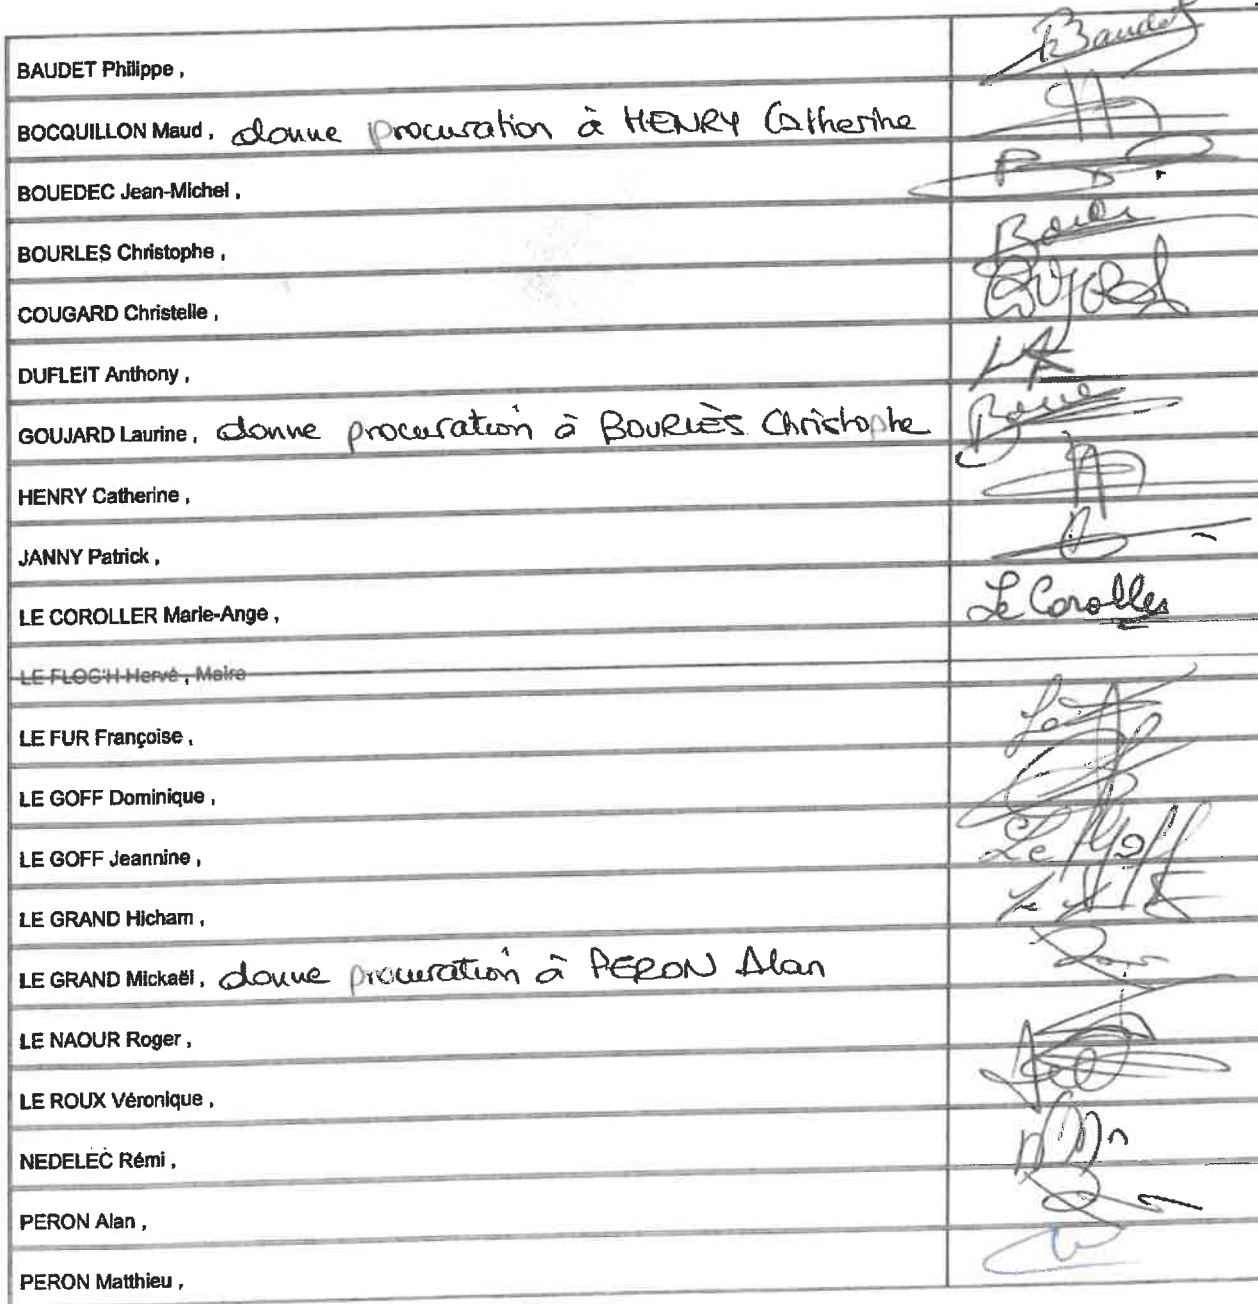 BAUDET Philippe , Baudet
BOCQUILLON Maud , donne procuration à HENRY Catherine
BOUEDEC Jean-Michel ,
BOURLES Christophe ,
COUGARD Christelle ,
DUFLEIT Anthony ,
GOUJARD Laurine , donne procuration à BOURLÈS Christophe
HENRY Catherine ,
JANNY Patrick ,
LE COROLLER Marie-Ange , Le Coroller
LE FLOC'H Hervé , Maire
LE FUR Françoise ,
LE GOFF Dominique ,
LE GOFF Jeannine , Le Goff
LE GRAND Hicham ,
LE GRAND Mickaël , donne procuration à PERON Alan
LE NAOUR Roger ,
LE ROUX Véronique ,
NEDELEC Rémi ,
PERON Alan ,
PERON Matthieu ,